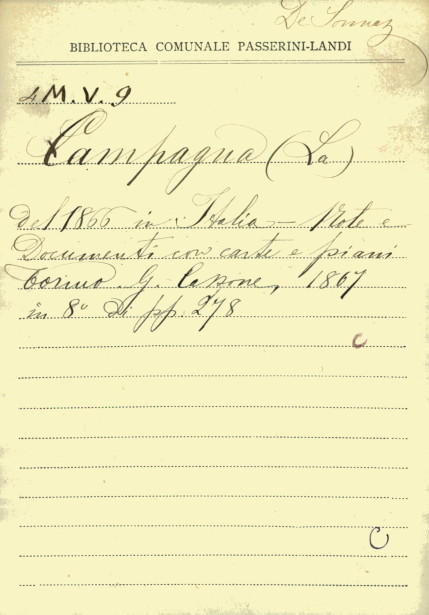 De Sonnaz
BIBLIOTECA COMUNALE PASSERINI-LANDI
4 M. V. 9
Campagna (La)
del 1866 in Italia — Note e
Documenti con carte e piani
Torino. G. Cassone, 1867
in 8° di pp. 278
C
C